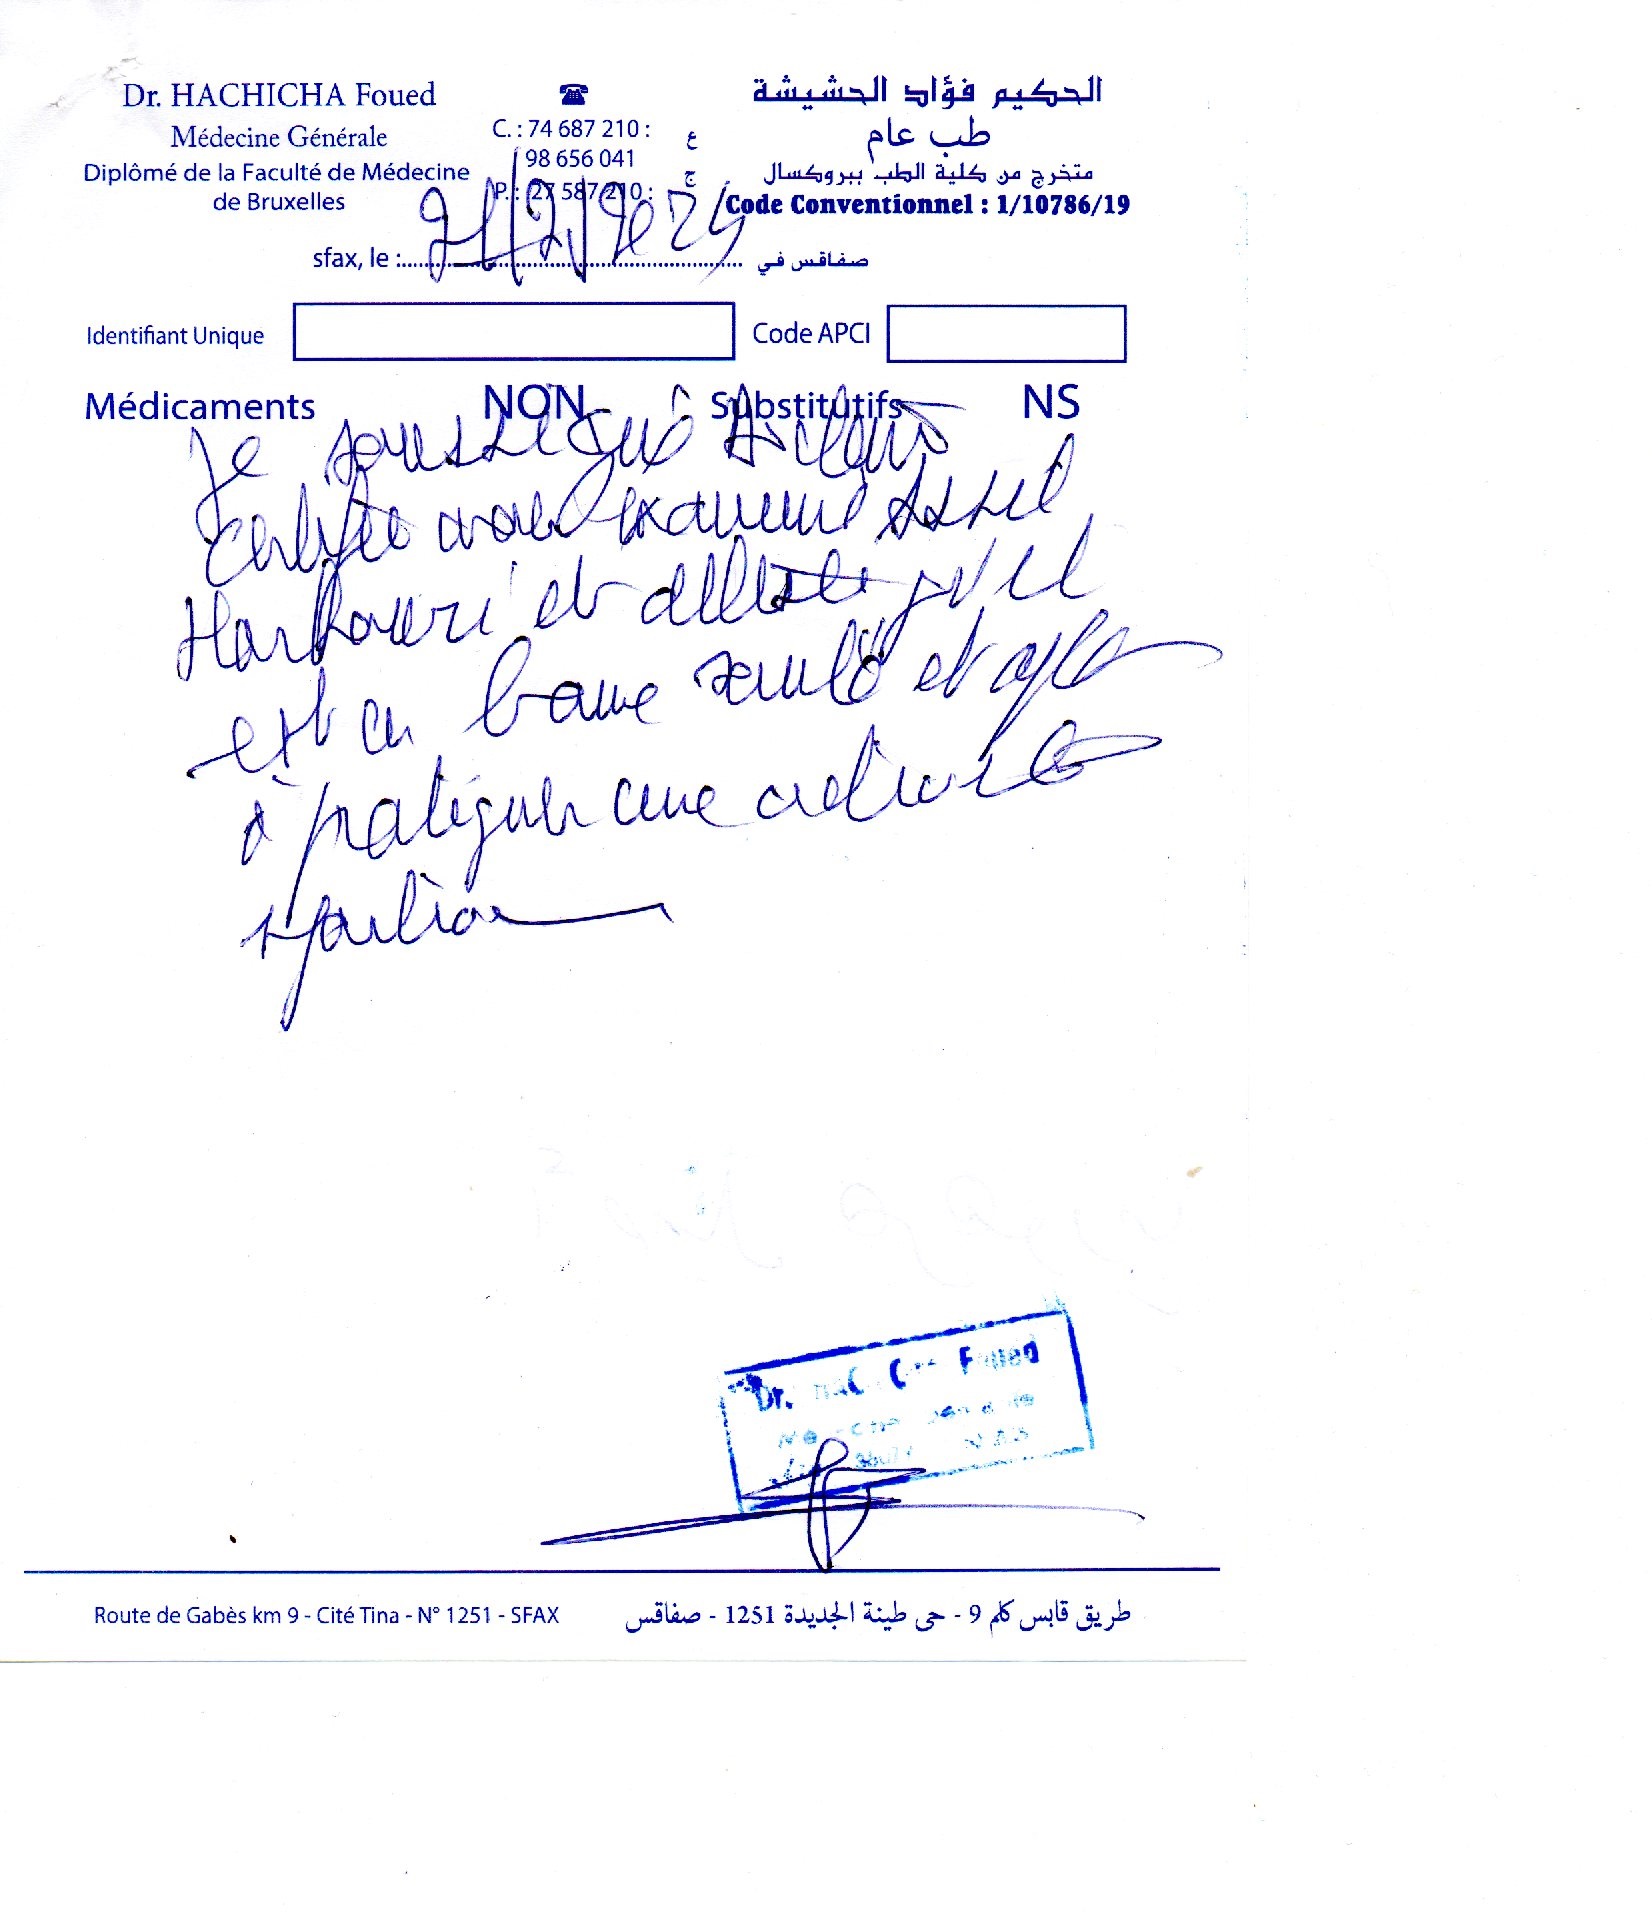 Dr. HACHICHA Foued
Médecine Générale
Diplômé de la Faculté de Médecine
de Bruxelles
☎
C. : 74 687 210 : ع
98 656 041
P. : 27 587 210 : ج
الحكيم فؤاد الحشيشة
طب عام
متخرج من كلية الطب ببروكسال
Code Conventionnel : 1/10786/19
sfax, le : 21/2/2024 صفاقس في
Identifiant Unique
Code APCI
Médicaments NON Substitutifs NS
Je soussigné
certifie avoir examiné Assil
et atteste qu'il
est en bonne santé et apte
à pratiquer une activité
sportive
Dr. Foued
Route de Gabès km 9 - Cité Tina - N° 1251 - SFAX
طريق قابس كلم 9 - حي طينة الجديدة 1251 - صفاقس